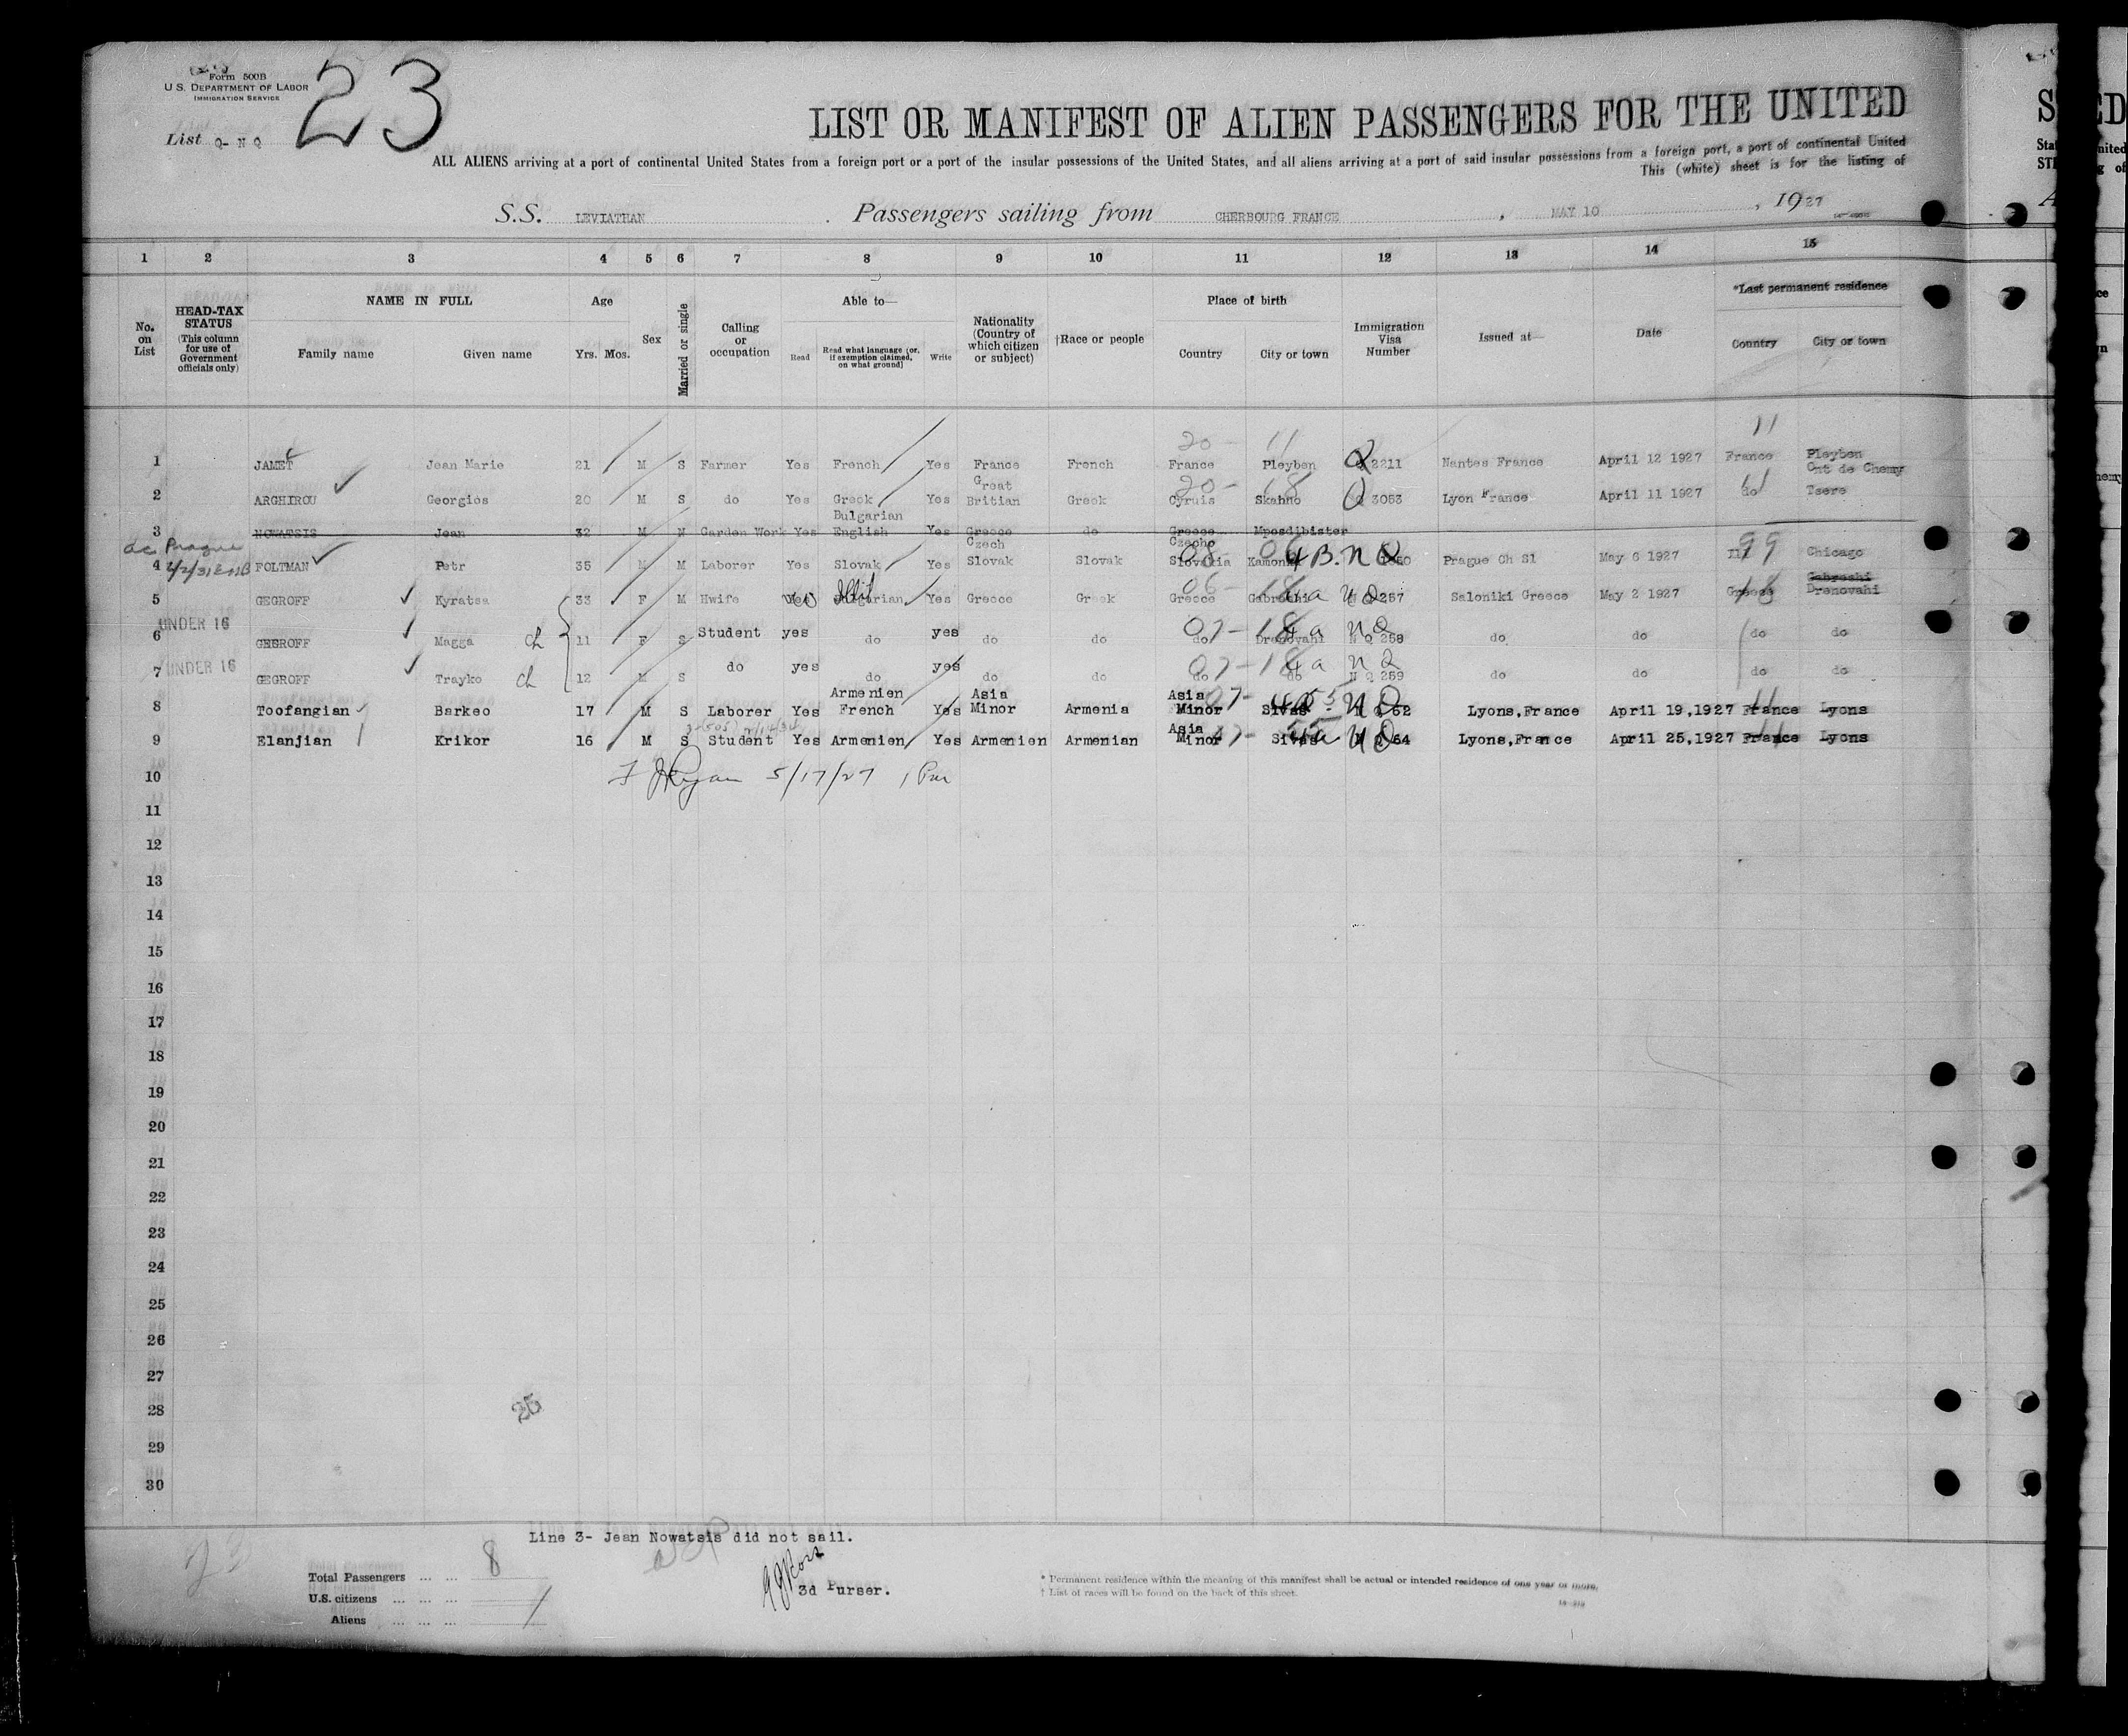 Form 500B
U.S. DEPARTMENT OF LABOR
IMMIGRATION SERVICE
23
List Q- N Q
LIST OR MANIFEST OF ALIEN PASSENGERS FOR THE UNITED
ALL ALIENS arriving at a port of continental United States from a foreign port or a port of the insular possessions of the United States, and all aliens arriving at a port of said insular possessions from a foreign port, a port of continental United
This (white) sheet is for the listing of
S.S. LEVIATHAN . Passengers sailing from CHERBOURG FRANCE , MAY 10 , 1927
1 2 3 4 5 6 7 8 9 10 11 12 13 14 15
No. on List
HEAD-TAX STATUS (This column for use of Government officials only)
NAME IN FULL Family name Given name
Age Yrs. Mos.
Sex
Married or single
Calling or occupation
Able to— Read Read what language (or, if exemption claimed, on what ground) Write
Nationality (Country of which citizen or subject)
†Race or people
Place of birth Country City or town
Immigration Visa Number
Issued at—
Date
*Last permanent residence Country City or town
20- 11 11
1 JAMET Jean Marie 21 M S Farmer Yes French Yes France French France Pleyben Q 2211 Nantes France April 12 1927 France Pleyben Cnt de Chemy
2 ARGHIROU Georgios 20 M S do Yes Greek Yes Great Britian Greek Cyruis Skahno 3053 Lyon France April 11 1927 do Tsere
3 NOWATSIS Jean 32 M N Garden Work Yes Bulgarian English Yes Greece do Greece Mposdibister
Prague
4 FOLTMAN Petr 35 M M Laborer Yes Slovak Yes Czech Slovak Slovak Czecho Slovakia Prague Ch Sl May 6 1927 Chicago
5 GEGROFF Kyratsa 33 F M Hwife Bulgarian Yes Greece Greek Greece 257 Saloniki Greece May 2 1927 Greece Gabreshi Drenovahi
UNDER 16
6 GEGROFF Magga ch 11 F S Student yes do yes do do do Drenovahi N Q 258 do do do do
UNDER 16
7 GEGROFF Trayko ch 12 M S do yes do yes do do do do N Q 259 do do do do
8 Toofangian Barkeo 17 M S Laborer Yes Armenien French Yes Asia Minor Armenia Asia Minor Sivas 62 Lyons,France April 19,1927 France Lyons
9 Elanjian Krikor 16 M S Student Yes Armenien Yes Armenien Armenian Asia Minor Sivas 64 Lyons,France April 25,1927 France Lyons
10 5/17/27
11
12
13
14
15
16
17
18
19
20
21
22
23
24
25
26
27
28
25
29
30
Line 3- Jean Nowatsis did not sail.
Total Passengers ... ... 8
U.S. citizens ... ... ...
Aliens ... ... ...
3d Purser.
* Permanent residence within the meaning of this manifest shall be actual or intended residence of one year or more.
† List of races will be found on the back of this sheet.